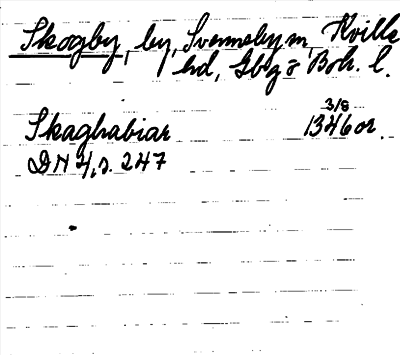 Skogby, by, Svenneby sn, Kville
hd, Gbg o Boh. l.
3/8
Skaghabiar 1346 or.
DN 4, s. 247